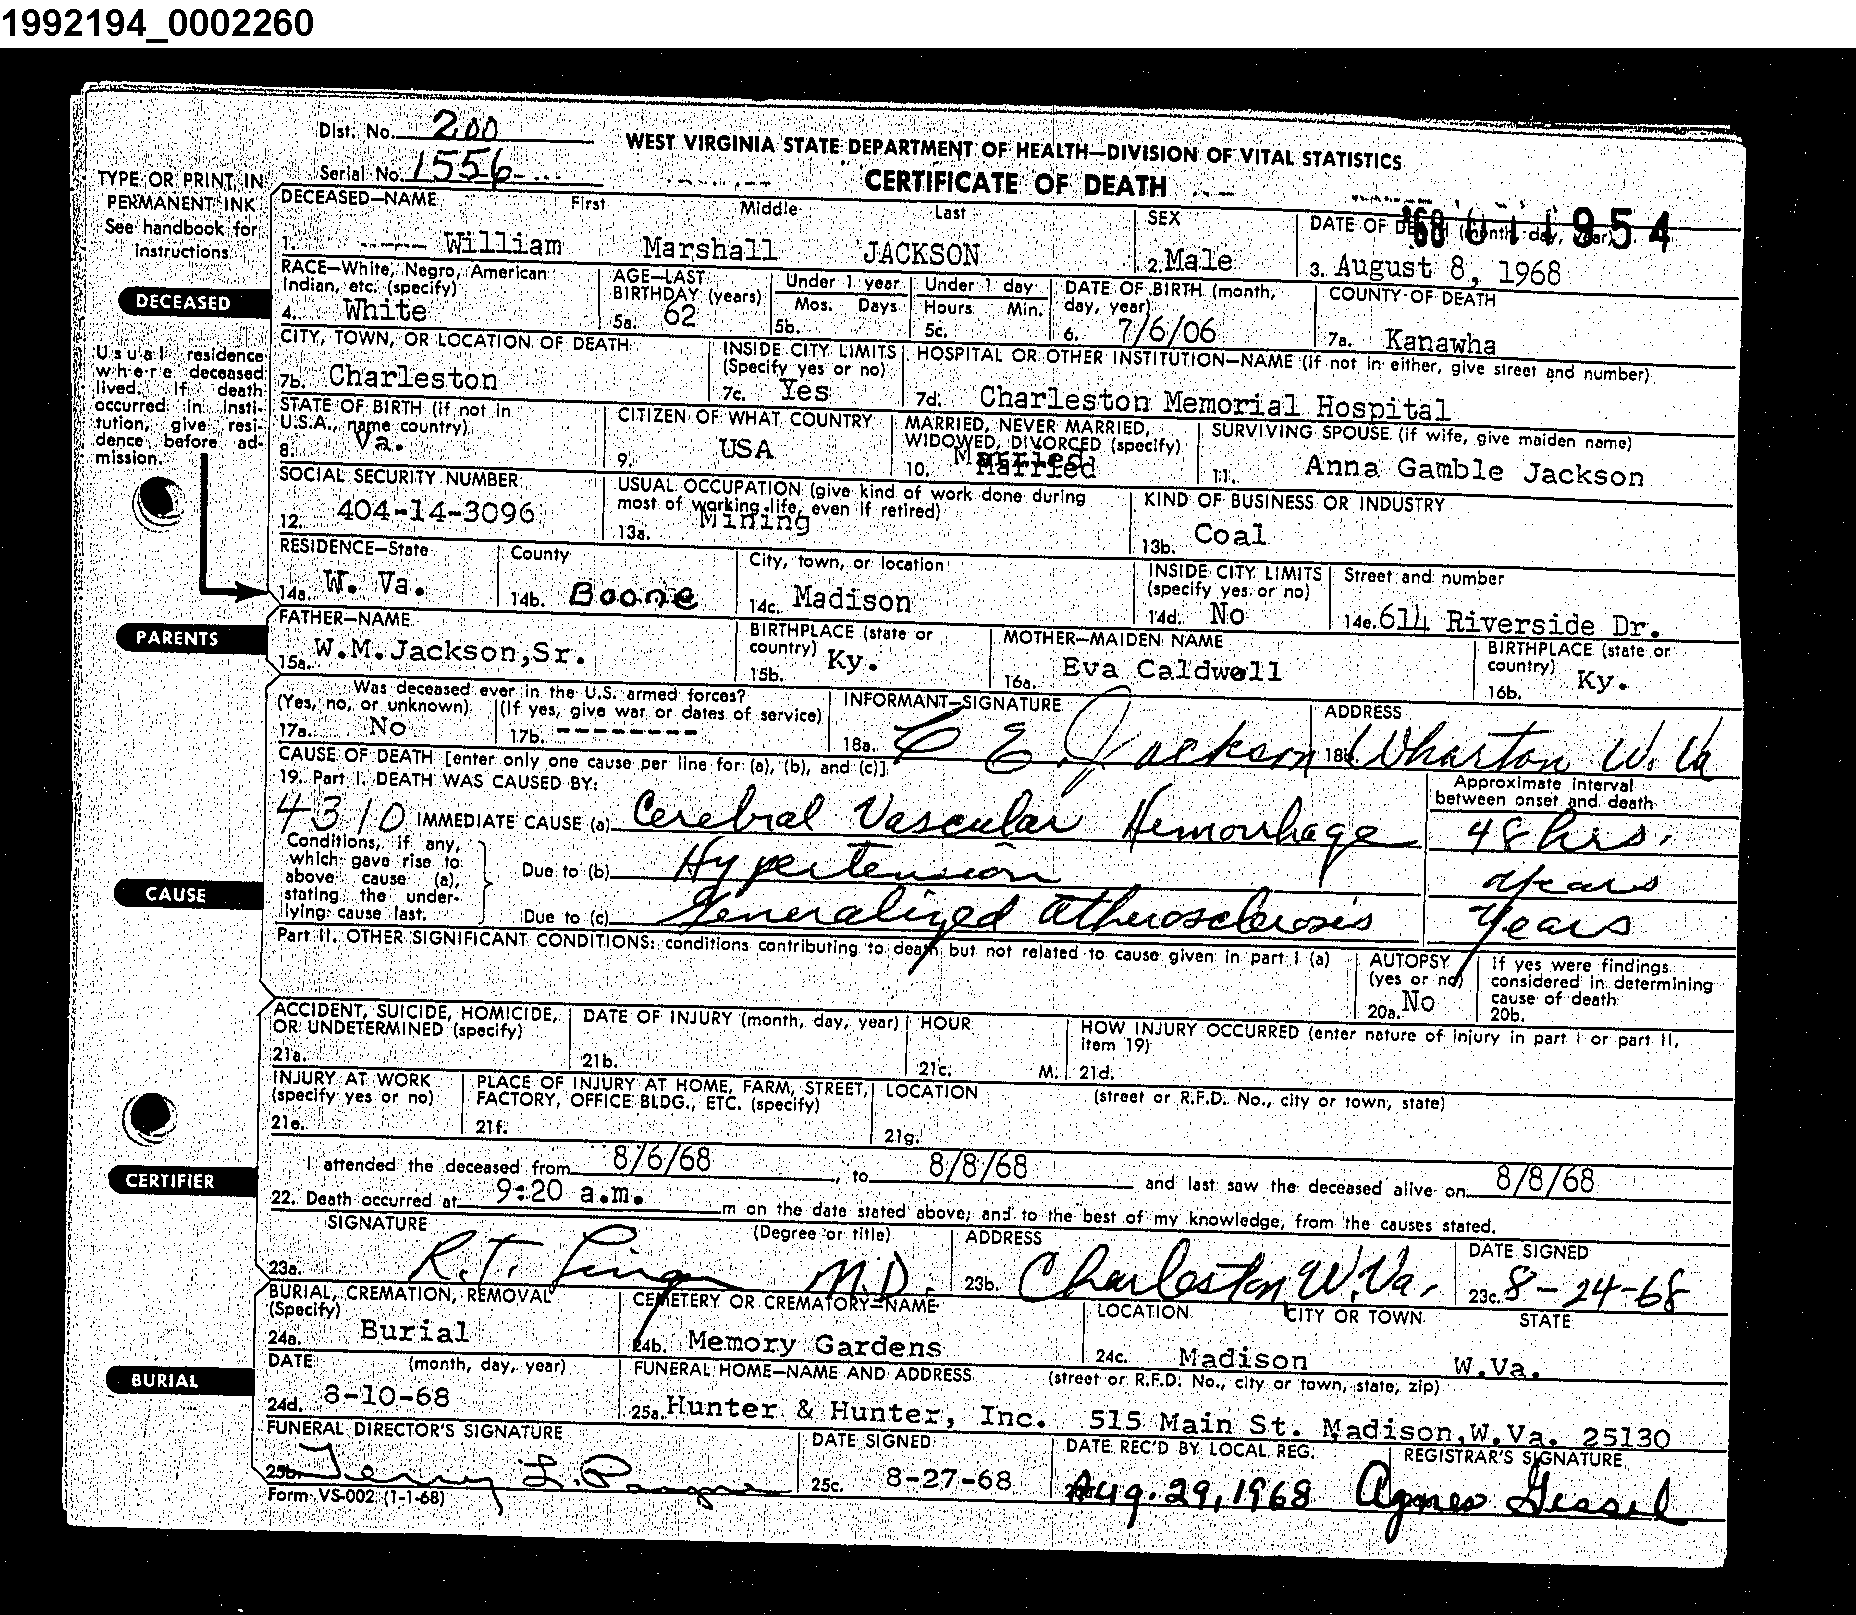 1992194_0002260
Dist. No. 200
WEST VIRGINIA STATE DEPARTMENT OF HEALTH—DIVISION OF VITAL STATISTICS
Serial No. 1556
CERTIFICATE OF DEATH
TYPE OR PRINT IN
PERMANENT INK
See handbook for
instructions
68 011954
DECEASED—NAME First Middle Last
1. William Marshall JACKSON
SEX
2. Male
DATE OF DEATH (month, day, year)
3. August 8, 1968
DECEASED
RACE—White, Negro, American
Indian, etc. (specify)
4. White
AGE—LAST
BIRTHDAY (years)
5a. 62
Under 1 year
Mos. Days
5b.
Under 1 day
Hours Min.
5c.
DATE OF BIRTH (month,
day, year)
6. 7/6/06
COUNTY OF DEATH
7a. Kanawha
Usual residence
where deceased
lived. If death
occurred in insti-
tution, give resi-
dence before ad-
mission.
CITY, TOWN, OR LOCATION OF DEATH
7b. Charleston
INSIDE CITY LIMITS
(Specify yes or no)
7c. Yes
HOSPITAL OR OTHER INSTITUTION—NAME (if not in either, give street and number)
7d. Charleston Memorial Hospital
STATE OF BIRTH (if not in
U.S.A., name country)
8. Va.
CITIZEN OF WHAT COUNTRY
9. USA
MARRIED, NEVER MARRIED,
WIDOWED, DIVORCED (specify)
10. Married
Married
SURVIVING SPOUSE (if wife, give maiden name)
11. Anna Gamble Jackson
SOCIAL SECURITY NUMBER
12. 404-14-3096
USUAL OCCUPATION (give kind of work done during
most of working life, even if retired)
13a. Mining
KIND OF BUSINESS OR INDUSTRY
13b. Coal
RESIDENCE—State
14a. W. Va.
County
14b. Boone
City, town, or location
14c. Madison
INSIDE CITY LIMITS
(specify yes or no)
14d. No
Street and number
14e. 614 Riverside Dr.
PARENTS
FATHER—NAME
15a. W.M.Jackson,Sr.
BIRTHPLACE (state or
country)
15b. Ky.
MOTHER—MAIDEN NAME
16a. Eva Caldwell
BIRTHPLACE (state or
country)
16b. Ky.
Was deceased ever in the U.S. armed forces?
(Yes, no, or unknown) (If yes, give war or dates of service)
17a. No 17b. --------
INFORMANT—SIGNATURE
18a. C E. Jackson
ADDRESS
18b. Wharton W. Va
CAUSE
CAUSE OF DEATH [enter only one cause per line for (a), (b), and (c)]
19. Part I. DEATH WAS CAUSED BY:
Approximate interval
between onset and death
4310 IMMEDIATE CAUSE (a) Cerebral Vascular Hemorrhage 48 hrs.
Conditions, if any,
which gave rise to
above cause (a),
stating the under-
lying cause last.
Due to (b) Hypertension years
Due to (c) Generalized atherosclerosis years
Part II. OTHER SIGNIFICANT CONDITIONS: conditions contributing to death but not related to cause given in part I (a)
AUTOPSY
(yes or no)
20a. No
If yes were findings
considered in determining
cause of death
20b.
ACCIDENT, SUICIDE, HOMICIDE,
OR UNDETERMINED (specify)
21a.
DATE OF INJURY (month, day, year)
21b.
HOUR
21c. M.
HOW INJURY OCCURRED (enter nature of injury in part I or part II,
item 19)
21d.
INJURY AT WORK
(specify yes or no)
21e.
PLACE OF INJURY AT HOME, FARM, STREET,
FACTORY, OFFICE BLDG., ETC. (specify)
21f.
LOCATION (street or R.F.D. No., city or town, state)
21g.
CERTIFIER
I attended the deceased from 8/6/68, to 8/8/68 and last saw the deceased alive on 8/8/68
22. Death occurred at 9:20 a.m. m on the date stated above; and to the best of my knowledge, from the causes stated.
SIGNATURE (Degree or title)
23a. R.T. M.D.
ADDRESS
23b. Charleston W.Va.
DATE SIGNED
23c. 8-24-68
BURIAL
BURIAL, CREMATION, REMOVAL
(Specify)
24a. Burial
CEMETERY OR CREMATORY—NAME
24b. Memory Gardens
LOCATION CITY OR TOWN STATE
24c. Madison W.Va.
DATE (month, day, year)
24d. 8-10-68
FUNERAL HOME—NAME AND ADDRESS (street or R.F.D. No., city or town, state, zip)
25a. Hunter & Hunter, Inc. 515 Main St. Madison,W.Va. 25130
FUNERAL DIRECTOR'S SIGNATURE
25b.
DATE SIGNED
25c. 8-27-68
DATE REC'D BY LOCAL REG.
Aug. 29, 1968
REGISTRAR'S SIGNATURE
Agnes
Form VS-002 (1-1-68)